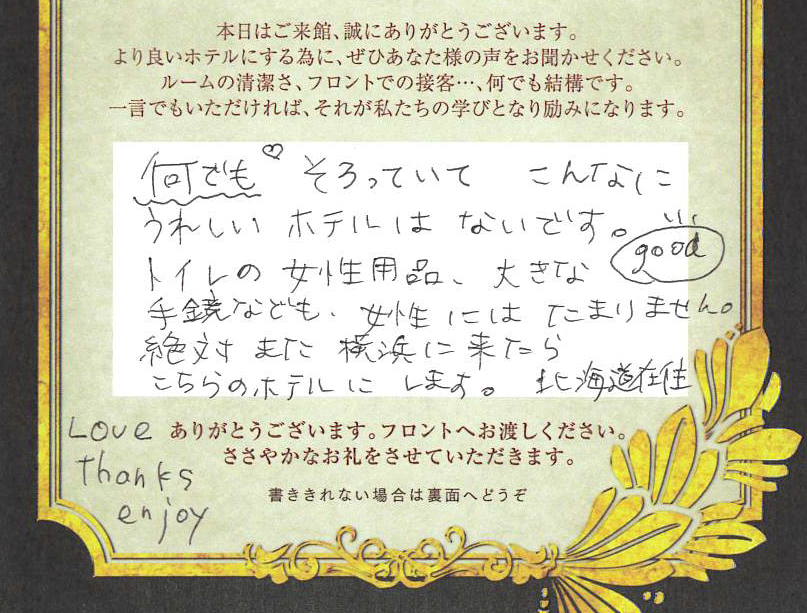 本日はご来館、誠にありがとうございます。
より良いホテルにする為に、ぜひあなた様の声をお聞かせください。
ルームの清潔さ、フロントでの接客…、何でも結構です。
一言でもいただければ、それが私たちの学びとなり励みになります。
何でも♡ そろっていて こんなに
うれしい ホテルは ないです。
good
トイレの 女性用品、大きな
手鏡なども、女性には たまりません。
絶対 また 横浜に来たら
こちらのホテルに します。 北海道在住
Love
thanks
enjoy
ありがとうございます。フロントへお渡しください。
ささやかなお礼をさせていただきます。
書ききれない場合は裏面へどうぞ